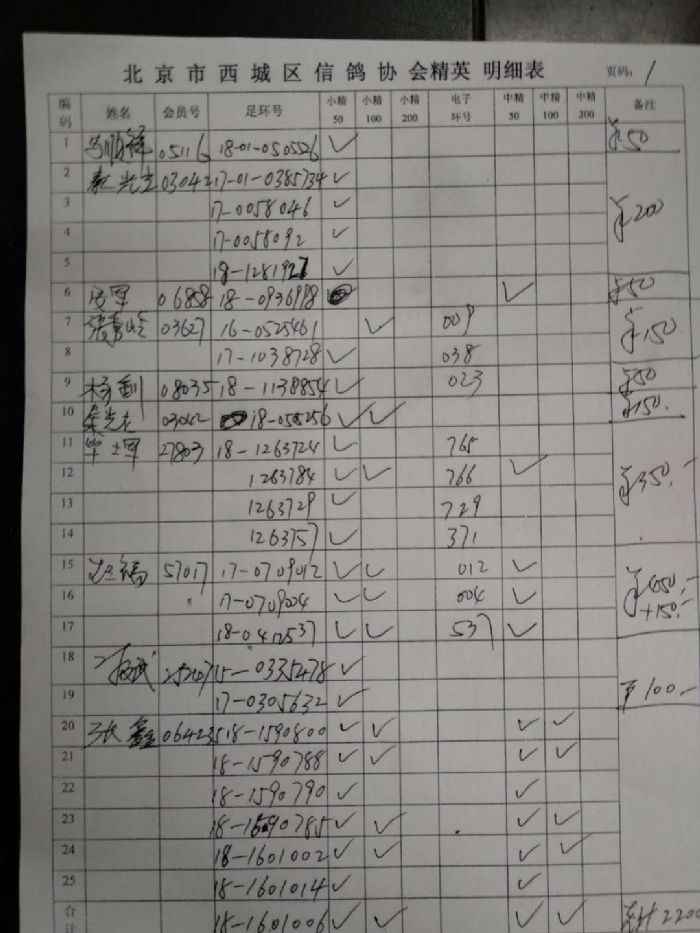 北京市西城区信鸽协会精英 明细表 页码: 1
编码 姓名 会员号 足环号 小精50 小精100 小精200 电子环号 中精50 中精100 中精200 备注
1 05116 18-01-0505526 ✓ ¥50
2 03042 17-01-0385734 ✓
3 17-0058046 ✓ ¥200
4 17-0058092 ✓
5 18-1281927 ✓
6 06858 18-0936998 ✓ ¥50
7 03627 16-0525461 ✓ 009 ¥150
8 17-1038728 ✓ 038
9 杨 08035 18-1138854 ✓ 023 ¥50
10 03042 18-058256 ✓ ✓ ¥150.
11 27803 18-1263724 ✓ 765
12 1263784 ✓ ✓ 766 ✓ ¥350.-
13 1263729 ✓ 729
14 1263757 ✓ 371
15 57017 17-0709012 ✓ ✓ 012 ✓ ¥450.-
16 17-0709004 ✓ ✓ 004 ✓ +150.-
17 18-0412537 ✓ ✓ 537 ✓
18 15-0335478 ✓
19 17-0305632 ✓ ¥100.-
20 张鑫 064235 18-1590800 ✓ ✓ ✓ ✓
21 18-1590788 ✓ ✓ ✓ ✓
22 18-1590790 ✓ ✓
23 18-1590785 ✓ ✓ ✓ ✓
24 18-1601002 ✓ ✓ ✓ ✓
25 18-1601014 ✓ ✓
合计 18-1601006 ✓ ✓ ✓ ✓ 共计2200